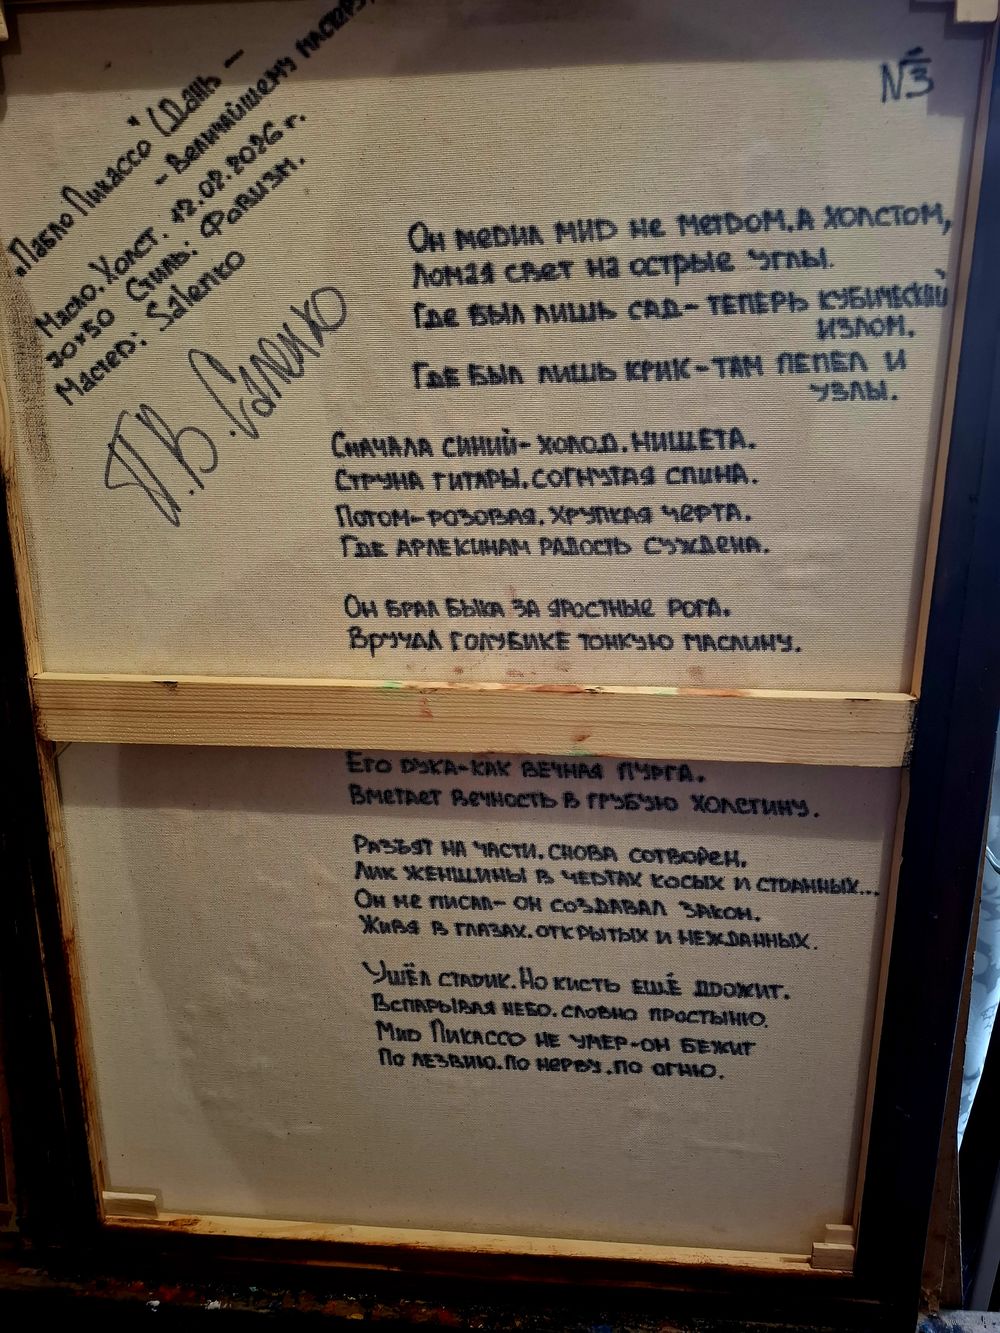 „Пабло Пикассо" (Дань –
– Величайшему мастеру)
Масло. Холст. 12.02.2026 г.
70×50 Стиль: Фовизм.
Мастер: Salenko
П.В. Саленко
№3
Он мерил мир не метром, а холстом,
Ломая свет на острые углы.
Где был лишь сад – теперь кубический
излом.
Где был лишь крик – там пепел и
узлы.
Сначала синий – холод. Нищета.
Струна гитары. Согнутая спина.
Потом – розовая. Хрупкая черта.
Где арлекинам радость суждена.
Он брал быка за яростные рога.
Вручал голубике тонкую маслину.
Его рука – как вечная пурга.
Вметает вечность в грубую холстину.
Разъят на части. Снова сотворен.
Лик женщины в чертах косых и странных...
Он не писал – он создавал закон.
Живя в глазах. Открытых и нежданных.
Ушёл старик. Но кисть ещё дрожит.
Вспарывая небо. Словно простыню.
Мир Пикассо не умер – он бежит
По лезвию. По нерву. По огню.